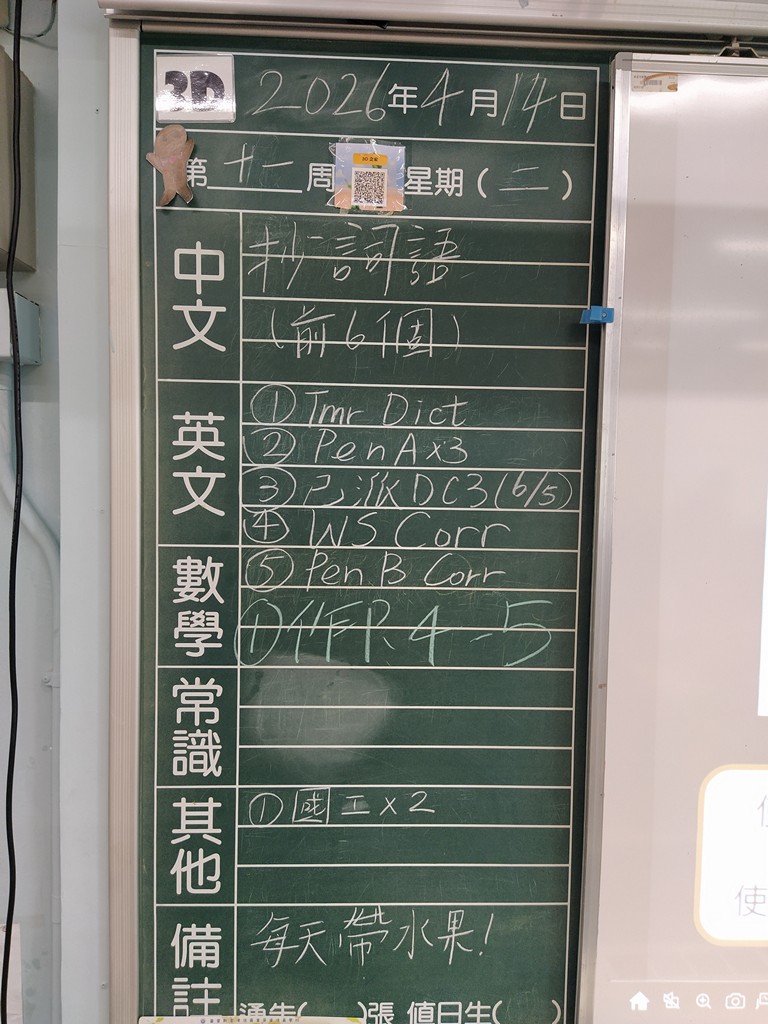 3D 2026年4月14日
第十一周 星期(二)
中文
抄詞語
(前6個)
英文
① Tmr Dict
② Pen A x3
③ 已派DC3(6/5)
④ WS Corr
⑤ Pen B Corr
數學
①作P.4-5
常識
其他
① 國工x2
備註
每天帶水果!
通告( )張 值日生( )
使